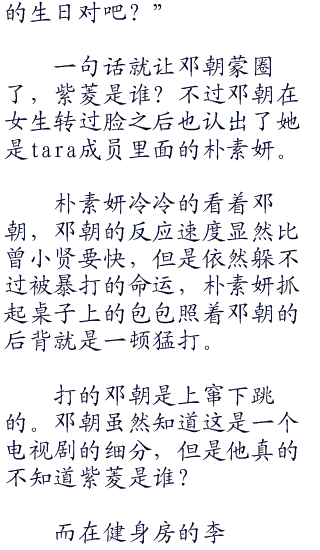 的生日对吧？”
一句话就让邓朝蒙圈
了，紫菱是谁？不过邓朝在
女生转过脸之后也认出了她
是tara成员里面的朴素妍。
朴素妍冷冷的看着邓
朝，邓朝的反应速度显然比
曾小贤要快，但是依然躲不
过被暴打的命运，朴素妍抓
起桌子上的包包照着邓朝的
后背就是一顿猛打。
打的邓朝是上窜下跳
的。邓朝虽然知道这是一个
电视剧的细分，但是他真的
不知道紫菱是谁？
而在健身房的李